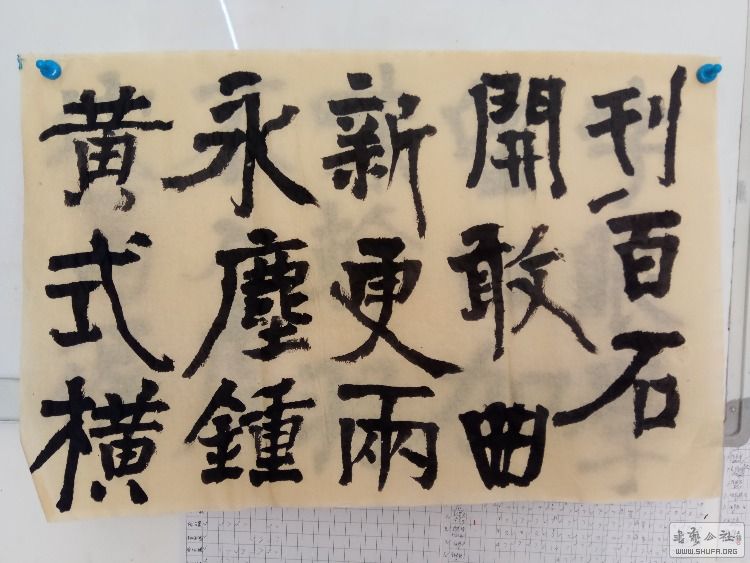 刊百石
開敢曲
新更兩
永塵鍾
黃式橫
WWW.SHUFA.ORG